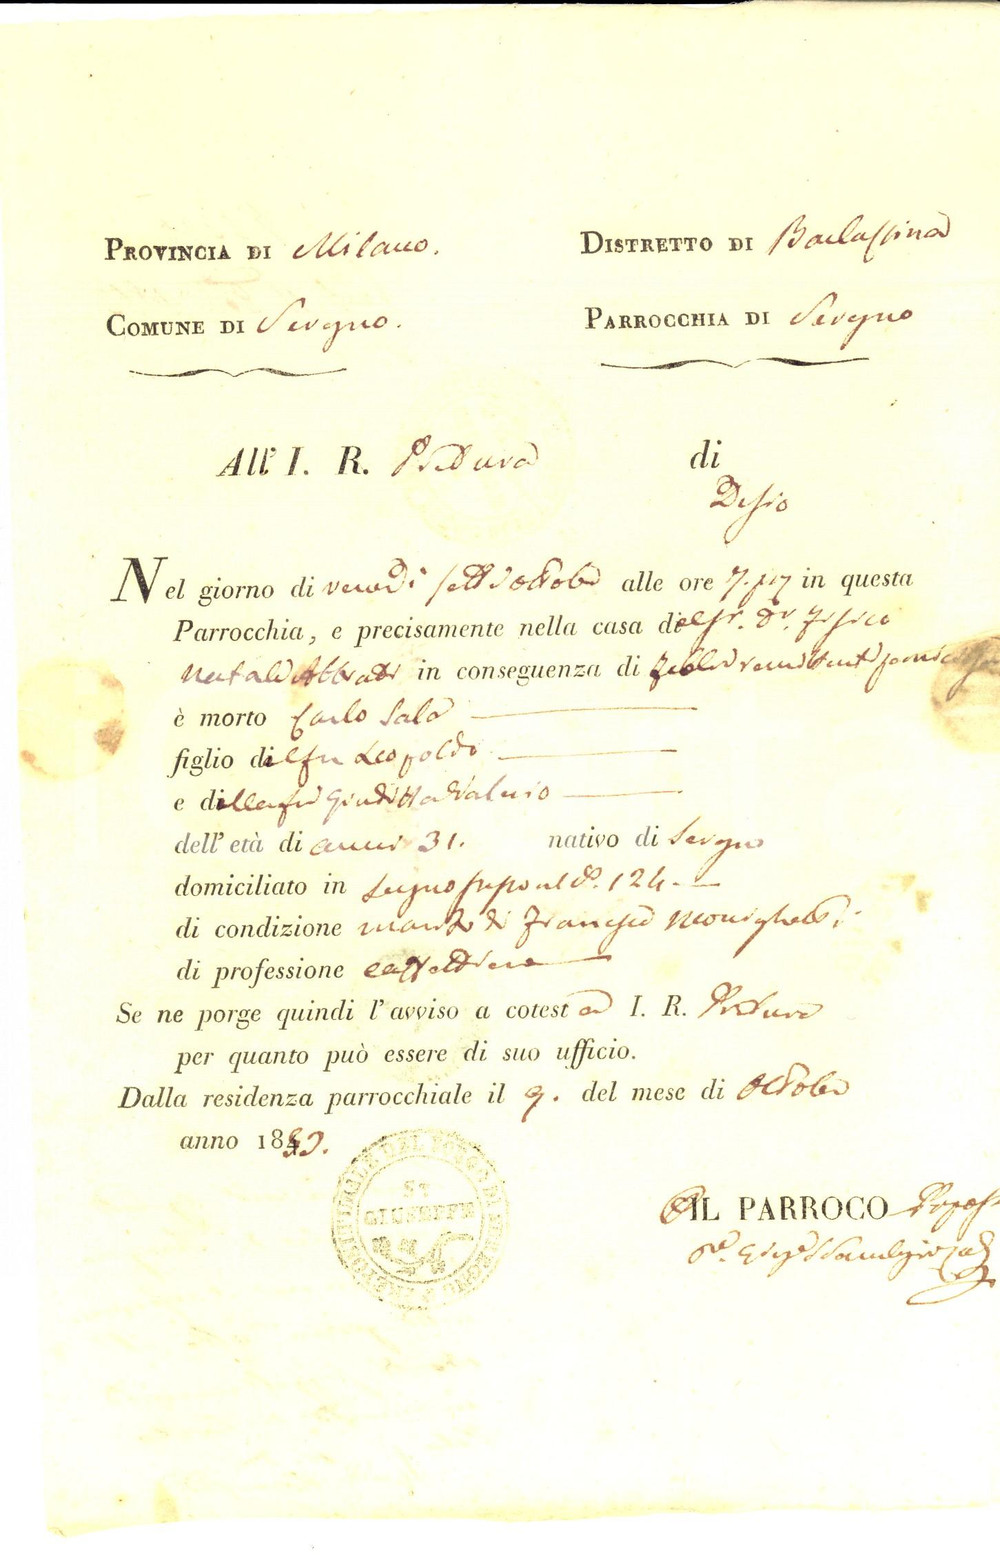 PROVINCIA DI Milano. DISTRETTO DI Barlassina
COMUNE DI Seregno. PARROCCHIA DI Seregno
All' I. R. Pretura di
Desio
Nel giorno di venerdi sette Ottobre alle ore 7. in questa
Parrocchia, e precisamente nella casa del Sr. Dr. Fisico
Natale in conseguenza di febbre
è morto Carlo Sala
figlio del fu Leopoldo
e della fu Giuditta
dell'età di anni 31. nativo di Seregno
domiciliato in Seregno al No. 124.
di condizione marito di Francesca
di professione caffettiere
Se ne porge quindi l'avviso a cotesta I. R. Pretura
per quanto può essere di suo ufficio.
Dalla residenza parrocchiale il 9. del mese di Ottobre
anno 18
ST
GIUSEPPE
IL PARROCO